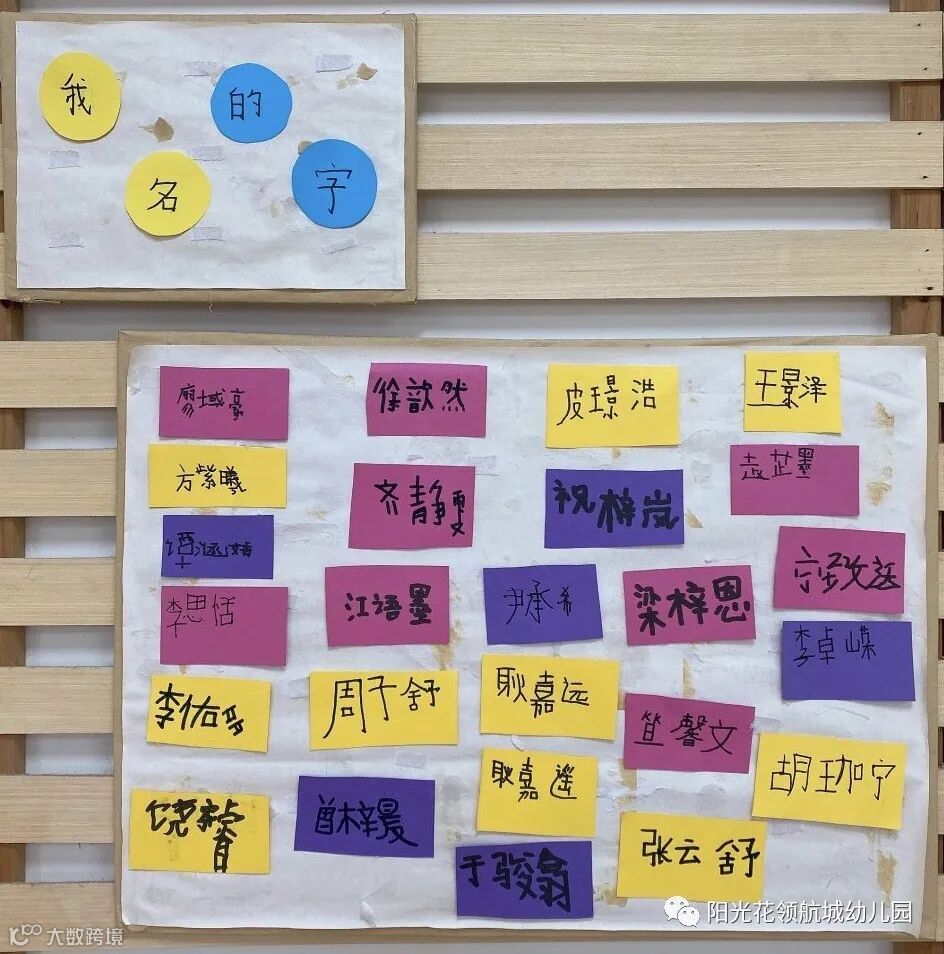 我的
名字
廖域豪
徐歆然
皮璟浩
王景泽
方紫曦
齐静雯
祝梓岚
芷墨
李思恬
江语墨
尹承希
梁梓恩
李卓嵘
李佑
周予舒
耿嘉远
馨文
耿嘉遥
胡珈宁
饶
梓晨
于骏翕
张云舒
阳光花领航城幼儿园
大数跨境